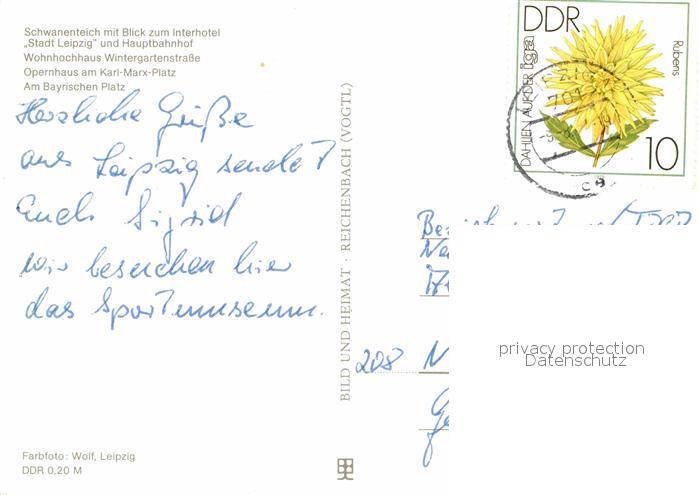 Schwanenteich mit Blick zum Interhotel
„Stadt Leipzig" und Hauptbahnhof
Wohnhochhaus Wintergartenstraße
Opernhaus am Karl-Marx-Platz
Am Bayrischen Platz
Herzliche Grüße
aus Leipzig sendet
Euch Sigrid
wir besuchen hier
das Sportmuseum.
Farbfoto: Wolf, Leipzig
DDR 0,20 M
BILD UND HEIMAT · REICHENBACH (VOGTL)
DDR
DAHLIEN AUF DER iga
Rubens
10
701
208 N
privacy protection
Datenschutz